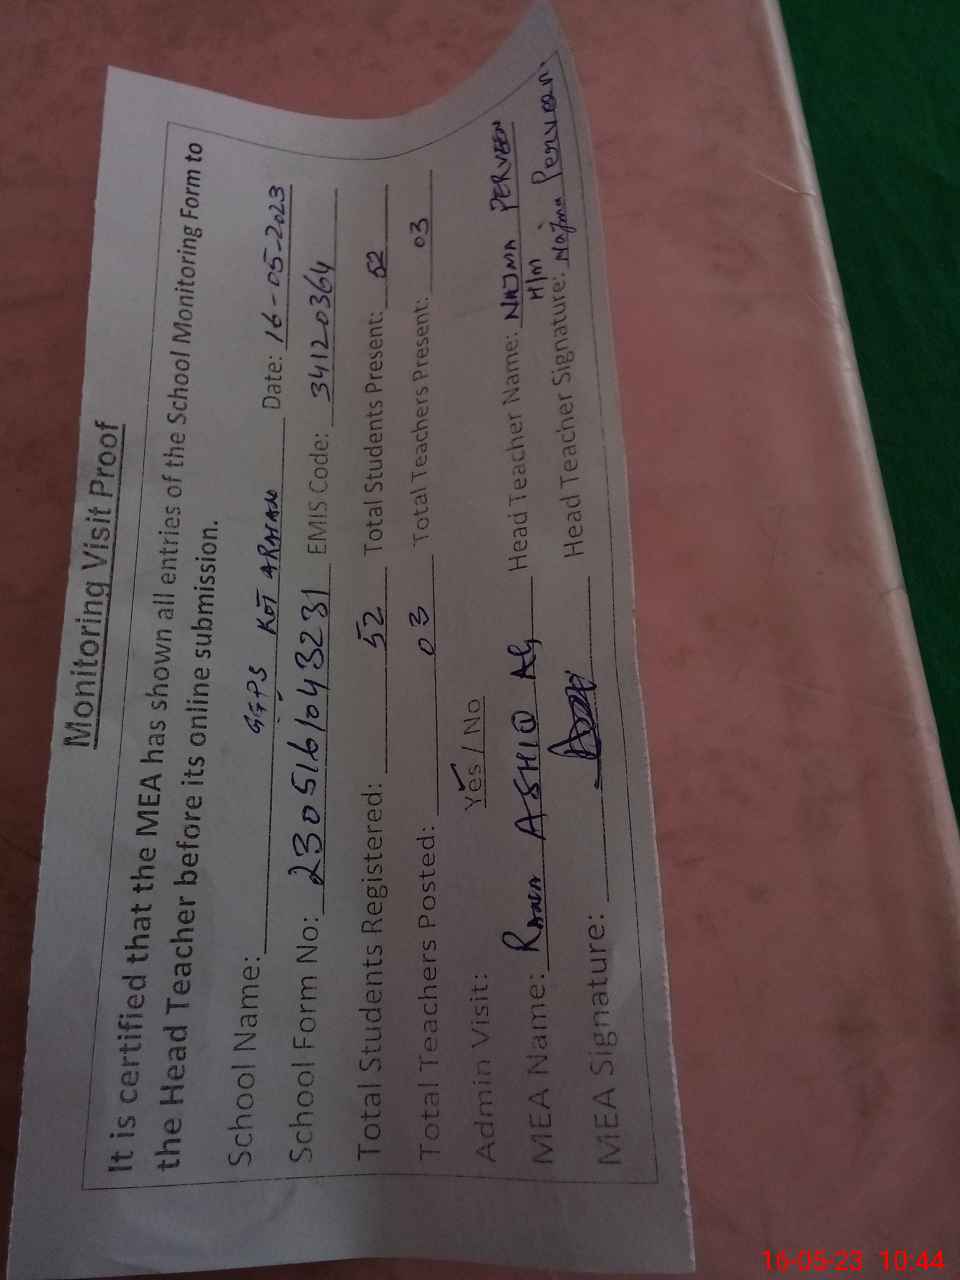 Monitoring Visit Proof
It is certified that the MEA has shown all entries of the School Monitoring Form to
the Head Teacher before its online submission.
School Name: GGPS KOT ARMAN Date: 16-05-2023
School Form No: 230516104323 1 EMIS Code: 34120364
Total Students Registered: 52 Total Students Present: 52
Total Teachers Posted: 03 Total Teachers Present: 03
Admin Visit: Yes / No
MEA Name: RANA ASHIQ Ali Head Teacher Name: NAJMA PERVEEN
H/m
MEA Signature: Head Teacher Signature: Najma Perveen.
16-05-23 10:44